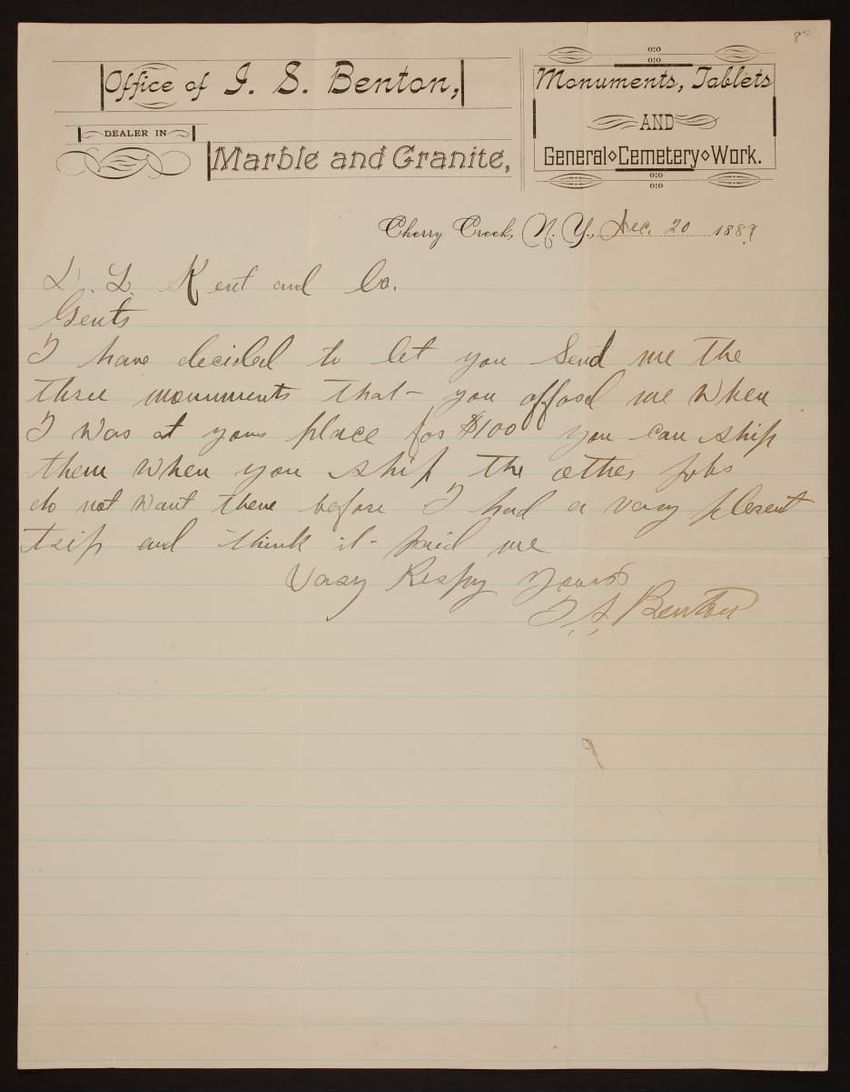 Office of I. S. Benton,
DEALER IN
Marble and Granite,
Monuments, Tablets
AND
General Cemetery Work.
Cherry Creek, N. Y., Dec. 20 1889
L. L. Kent and Co.
Gents
I have decided to let you Send me the
three monuments that - you offosd me When
I Was at yous place fos $100 you can ship
them When you ship the othes jobs
do not Want them before I had a vary plesent
trip and think it - paid me
Vary Respy Yours
I. S. Benton